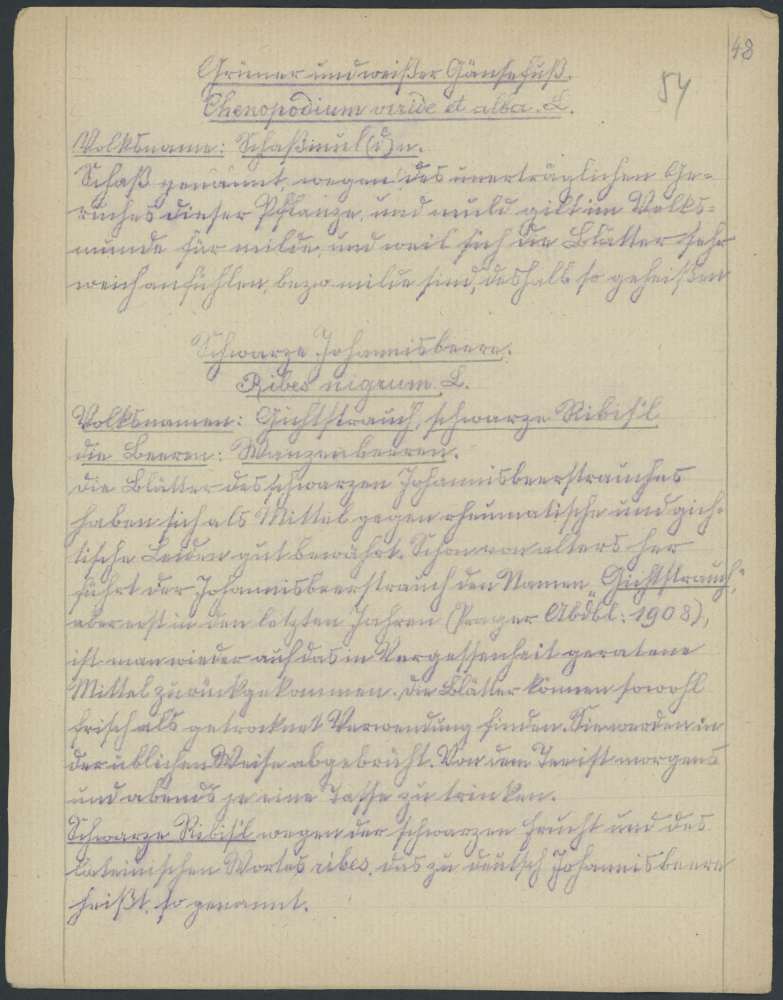 48
54
Grüner und weißer Gänsefuß.
Chenopodium viride et alba. L.
Volksname: Schaßmul(d)n.
Schaß genannt, wegen des unerträglichen Ge-
ruches dieser Pflanze, und muld gilt im Volks-
munde für milde, und weil sich die Blätter sehr
weich anfühlen, bezw. milde sind, deshalb so geheißen
Schwarze Johannisbeere.
Ribes nigrum. L.
Volksnamen: Gichtstrauch, schwarze Ribis'l
die Beeren: Wanzenbeeren.
Die Blätter des schwarzen Johannisbeerstrauches
haben sich als Mittel gegen rheumatische und gich-
tische Leiden gut bewährt. Schon von alters her
führt der Johannisbeerstrauch den Namen „Gichtstrauch",
aber erst in den letzten Jahren (Prager Abdbl: 1908),
ist man wieder auf das in Vergessenheit geratene
Mittel zurückgekommen. Die Blätter können sowohl
frisch als getrocknet Verwendung finden. Sie werden in
der üblichen Weise abgebrüht. Von dem Tee ist morgens
und abends je eine Tasse zu trinken.
Schwarze Ribis'l wegen der schwarzen Frucht und des
lateinischen Wortes ribes, das zu deutsch Johannisbeere
heißt, so genannt.